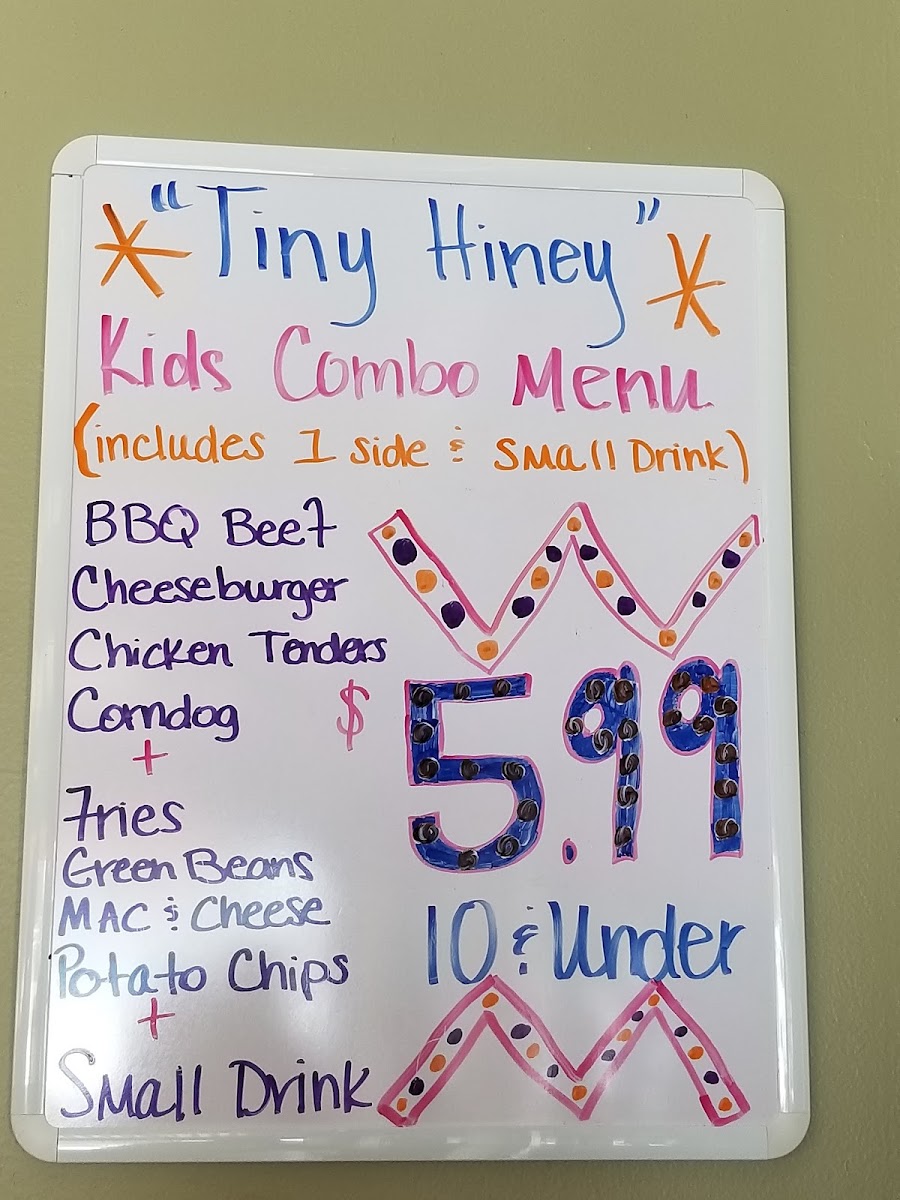 * "Tiny Hiney" *
Kids Combo Menu
(includes 1 side & Small Drink)
BBQ Beef
Cheeseburger
Chicken Tenders
Corndog
+
Fries
Green Beans
MAC & Cheese
Potato Chips
+
Small Drink
$5.99
10 & Under